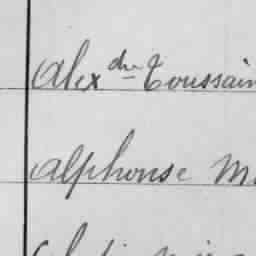 Alexdre Toussain
Alphonse M